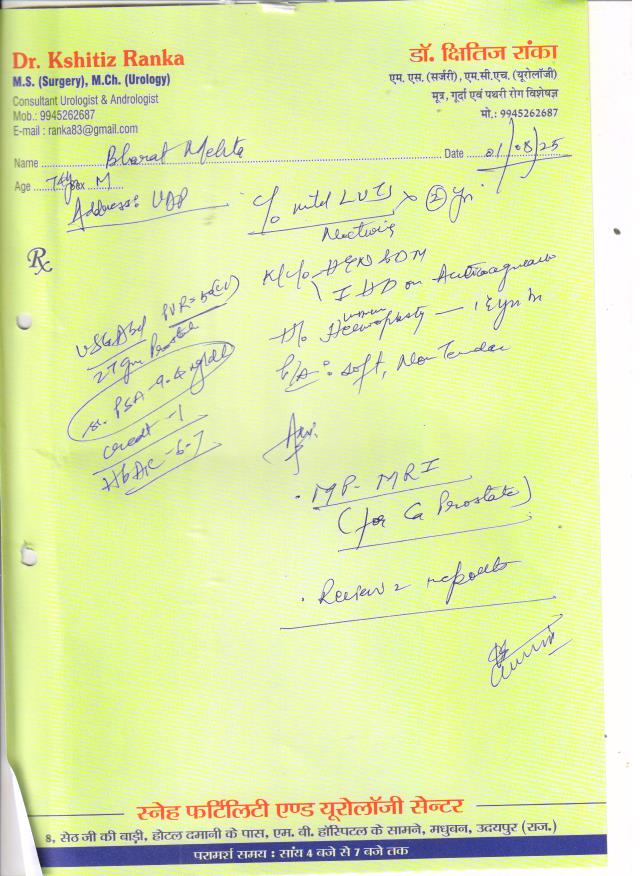 Dr. Kshitiz Ranka
M.S. (Surgery), M.Ch. (Urology)
Consultant Urologist & Andrologist
Mob.: 9945262687
E-mail : ranka83@gmail.com
डॉ. क्षितिज रांका
एम. एस. (सर्जरी), एम.सी.एच. (यूरोलॉजी)
मूत्र, गूर्दा एवं पथरी रोग विशेषज्ञ
मो.: 9945262687
Name Bharat Mehta Date 01/08/25
Age 74y Sex M
Address: UDP
c/o mild LUTS x
Nocturia
Rx
K/c/o HTN & DM
IHD on
H/o
P/A: soft, Non Tender
USG Abd PVR=
27gm Prostate
Sr. PSA - 9.
creat - 1
HbA1C - 6.7
Adv.
. MP- MRI
(for Ca Prostate)
. Review c reports
स्नेह फर्टिलिटी एण्ड यूरोलॉजी सेन्टर
8, सेठ जी की बाड़ी, होटल दमानी के पास, एम. बी. हॉस्पिटल के सामने, मधुबन, उदयपुर (राज.)
परामर्श समय : सांय 4 बजे से 7 बजे तक